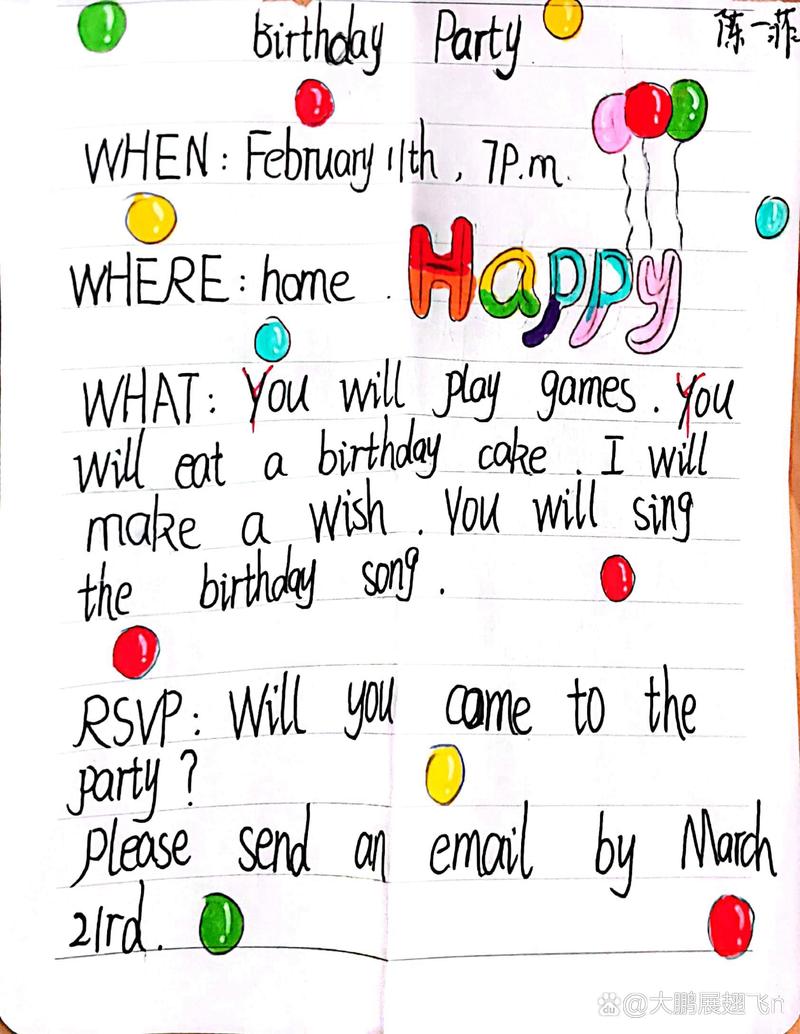 Birthday Party
陈一菲
WHEN: February 11th, 7P.m.
WHERE: home.
Happy
WHAT: You will play games. You
will eat a birthday cake. I will
make a wish. You will sing
the birthday song.
RSVP: Will you come to the
party?
Please send an email by March
21rd.
@大鹏展翅飞n